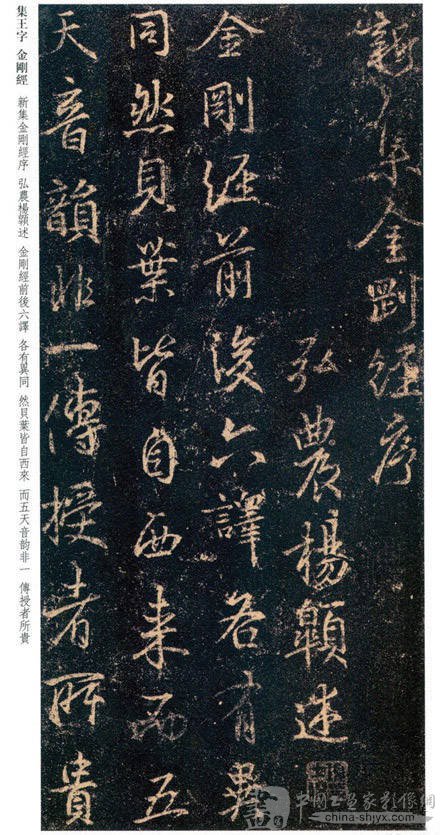 新集金剛經序
弘農楊顗述
金剛經前後六譯各有異
同然貝葉皆自西來而五
天音韻非一傳授者所貴
集王字 金剛經 新集金剛經序 弘農楊顗述 金剛經前後六譯 各有異同 然貝葉皆自西來 而五天音韵非一 傳授者所貴
中国书画家影像網
www.china-shjyx.com